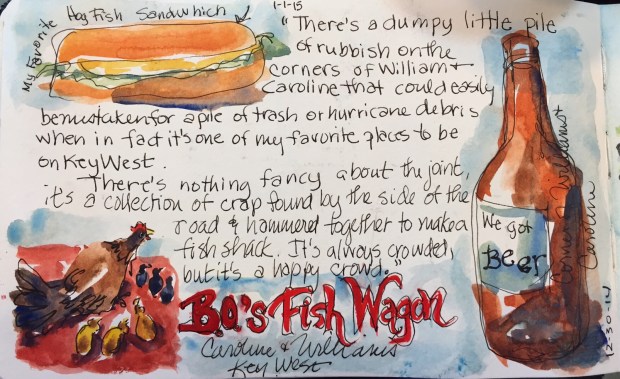 My Favorite Hog Fish Sandwhich
1-1-15
"There's a dumpy little pile
of rubbish on the
corners of William +
Caroline that could easily
be mustaken for a pile of trash or hurricane debris
when in fact it's one of my favorite places to be
on Key West.
There's nothing fancy about the joint,
it's a collection of crap found by the side of the
road & hammered together to make a
fish shack. It's always crowded,
but it's a happy crowd."
Bo's Fish Wagon
Caroline & Williams
Key West
We got
Beer
Corner of Williams +
Caroline
12-30-14